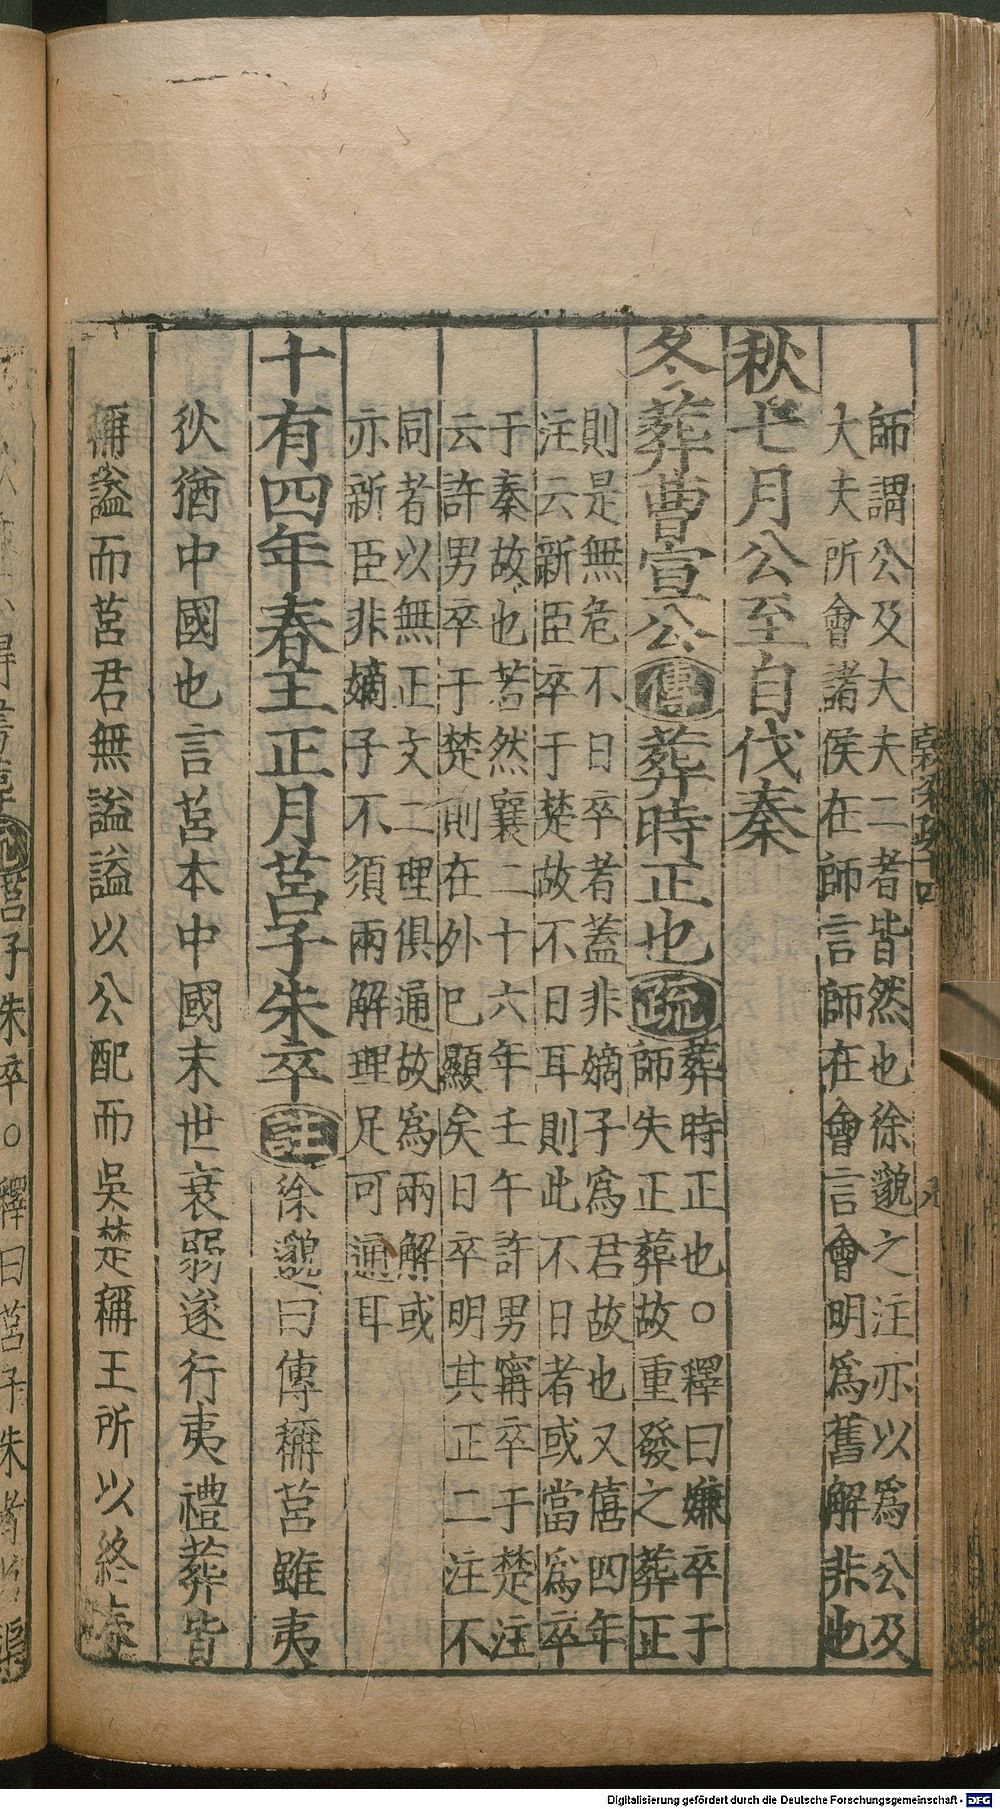 師謂公及大夫二者皆然也徐邈之注亦以爲公及
大夫所會諸侯在師言師在會言會明爲舊解非也
秋七月公至自伐秦
冬葬曹宣公傳葬時正也疏
葬時正也○釋曰嫌卒于
師失正葬故重發之葬正
則是無危不日卒者蓋非嫡子爲君故也又僖四年
注云新臣卒于楚故不日耳則此不日者或當爲卒
于秦故也若然襄二十六年壬午許男甯卒于楚注
云許男卒于楚則在外已顯矣日卒明其正二注不
同者以無正文二理俱通故爲兩解或
亦新臣非嫡子不須兩解理足可通耳
十有四年春王正月莒子朱卒注徐邈曰傳稱莒雖夷
狄猶中國也言莒本中國末世衰弱遂行夷禮葬皆
稱謚而莒君無謚謚以公配而吳楚稱王所以終春
莒子朱卒○釋曰莒子朱者
Digitalisierung gefördert durch die Deutsche Forschungsgemeinschaft - DFG